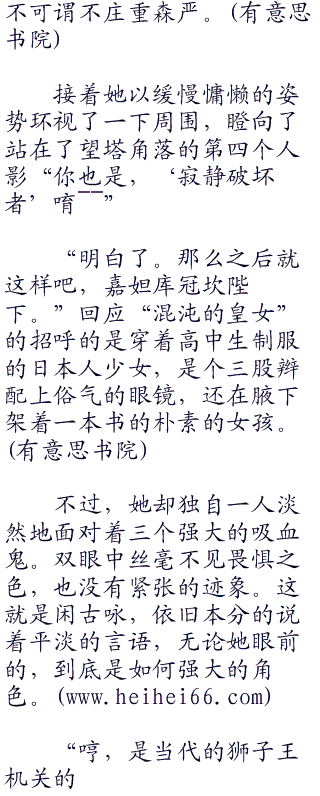 不可谓不庄重森严。(有意思
书院)
接着她以缓慢慵懒的姿
势环视了一下周围，瞪向了
站在了望塔角落的第四个人
影“你也是，‘寂静破坏
者’唷――”
“明白了。那么之后就
这样吧，嘉妲库冠坎陛
下。”回应“混沌的皇女”
的招呼的是穿着高中生制服
的日本人少女，是个三股辫
配上俗气的眼镜，还在腋下
架着一本书的朴素的女孩。
(有意思书院)
不过，她却独自一人淡
然地面对着三个强大的吸血
鬼。双眼中丝毫不见畏惧之
色，也没有紧张的迹象。这
就是闲古咏，依旧本分的说
着平淡的言语，无论她眼前
的，到底是如何强大的角
色。(www.heihei66.com)
“哼，是当代的狮子王
机关的